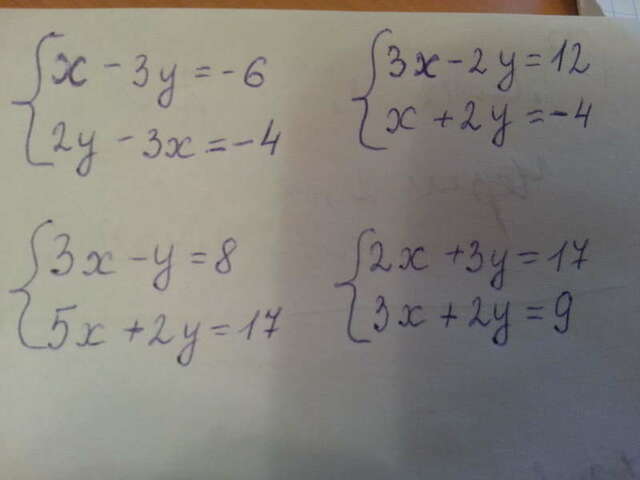 x - 3y = -6
2y - 3x = -4
3x - 2y = 12
x + 2y = -4
3x - y = 8
5x + 2y = 17
2x + 3y = 17
3x + 2y = 9